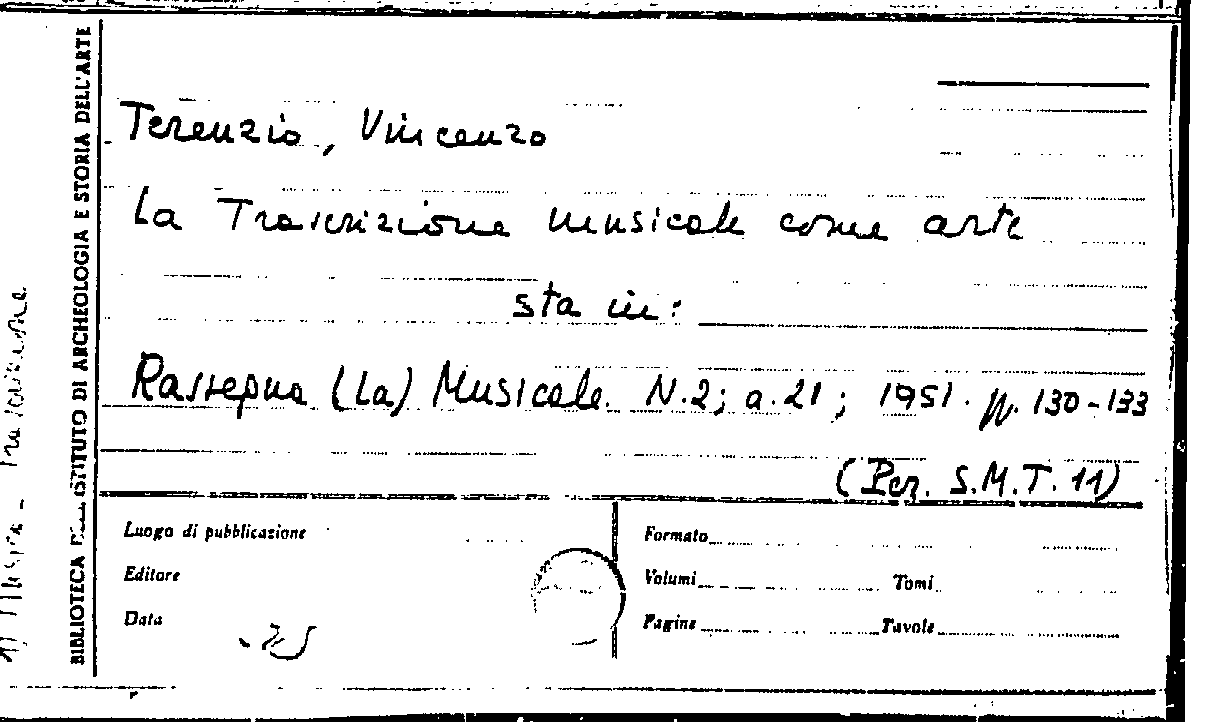 Terenzio, Vincenzo
La Trascrizione musicale come arte
sta in:
Rassegna (La) Musicale. N.2; a.21; 1951. pp. 130-133
(Per. S.M.T. 11)
Luogo di pubblicazione
Editore
Data
Formato
Volumi Tomi
Pagine Tavole
BIBLIOTECA DELL'ISTITUTO DI ARCHEOLOGIA E STORIA DELL'ARTE
Musica - Trascrizione